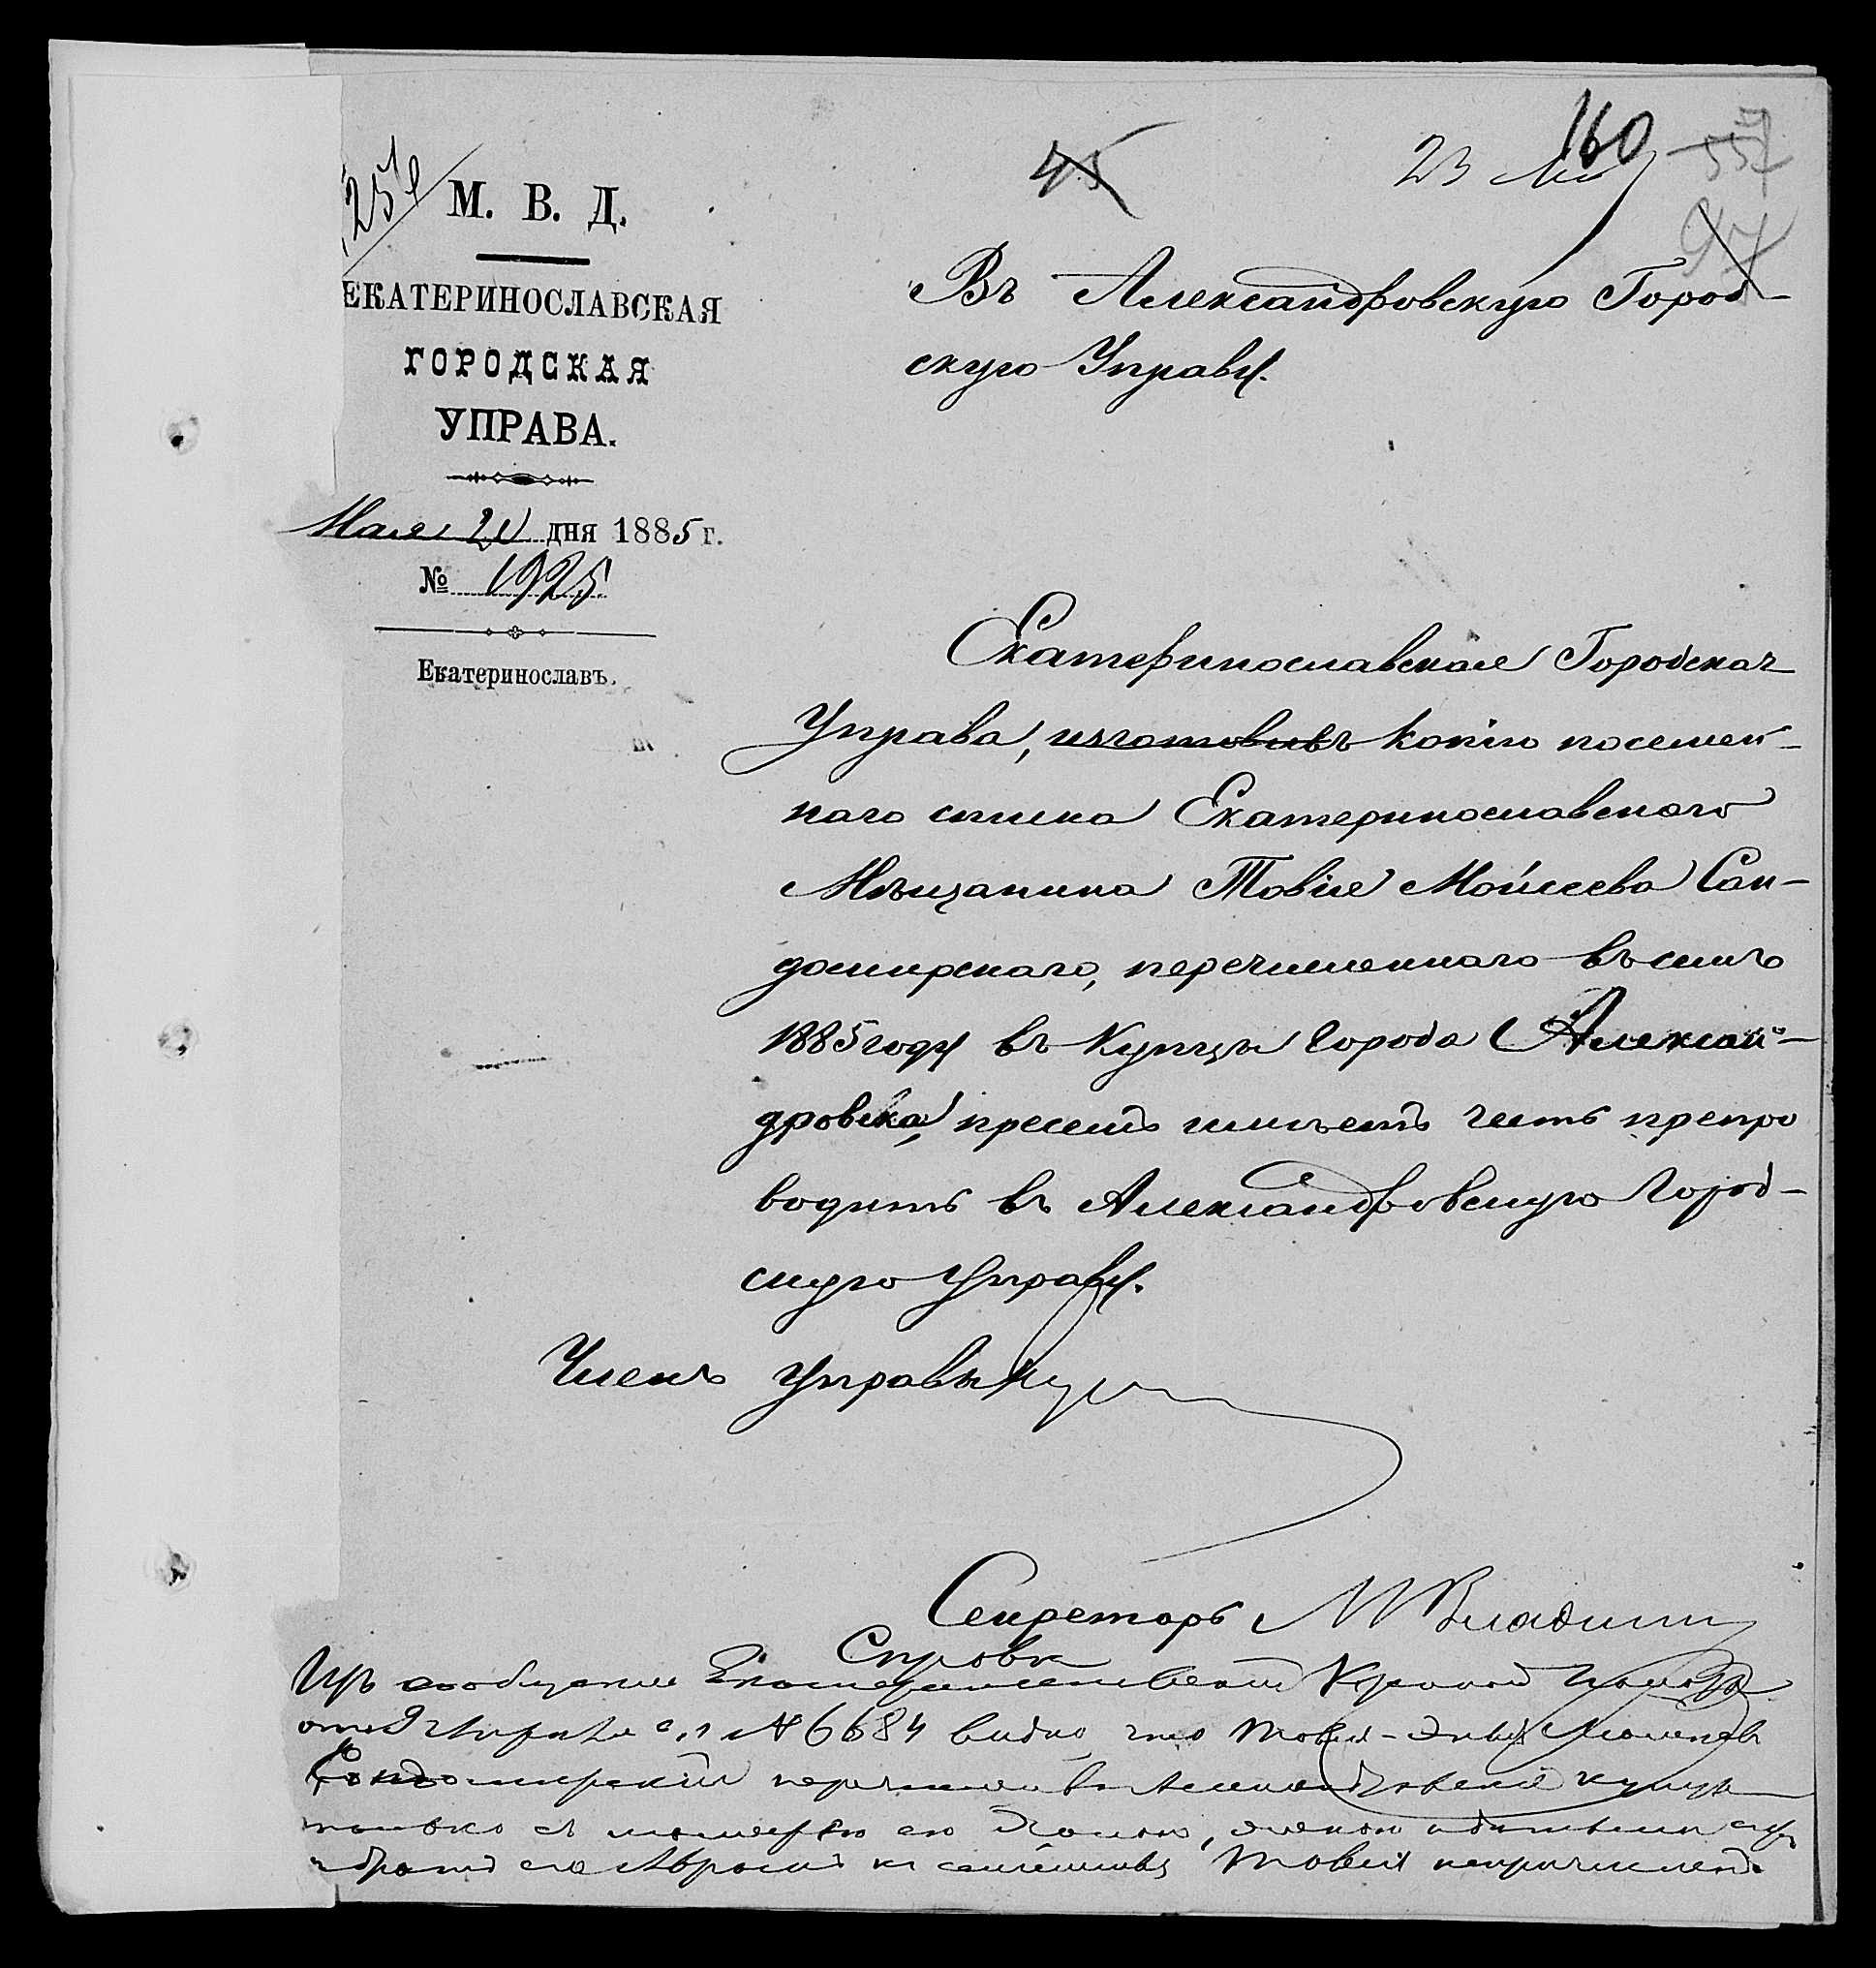 160
45
23
557
97
1251
М. В. Д.
ЕКАТЕРИНОСЛАВСКАЯ
ГОРОДСКАЯ
УПРАВА.
Мая 20 дня 1885 г.
№ 1925
Екатеринославъ.
Въ Александровскую Город-
скую Управу.
Екатеринославская Городская
Управа, изготовивъ копію посемей-
наго списка Екатеринославскаго
Мѣщанина Товія Мойсеева Сан-
домирскаго, перечисленнаго въ семъ
1885 году въ купцы города Алексан-
дровска, при семъ имѣетъ честь препро
водить въ Александровскую Город-
скую Управу.
Членъ Управы
Секретарь
Справка
Изъ сообщенія Екатеринославской Казенной Палаты
отъ 9 Апрѣля с.г. № 6684 видно, что Товія
Сандомирскій перечисленъ въ Александровскіе купцы
только съ матерью его, женою и дѣтьми
братъ его Абрамъ къ семейству Товія непричисленъ.